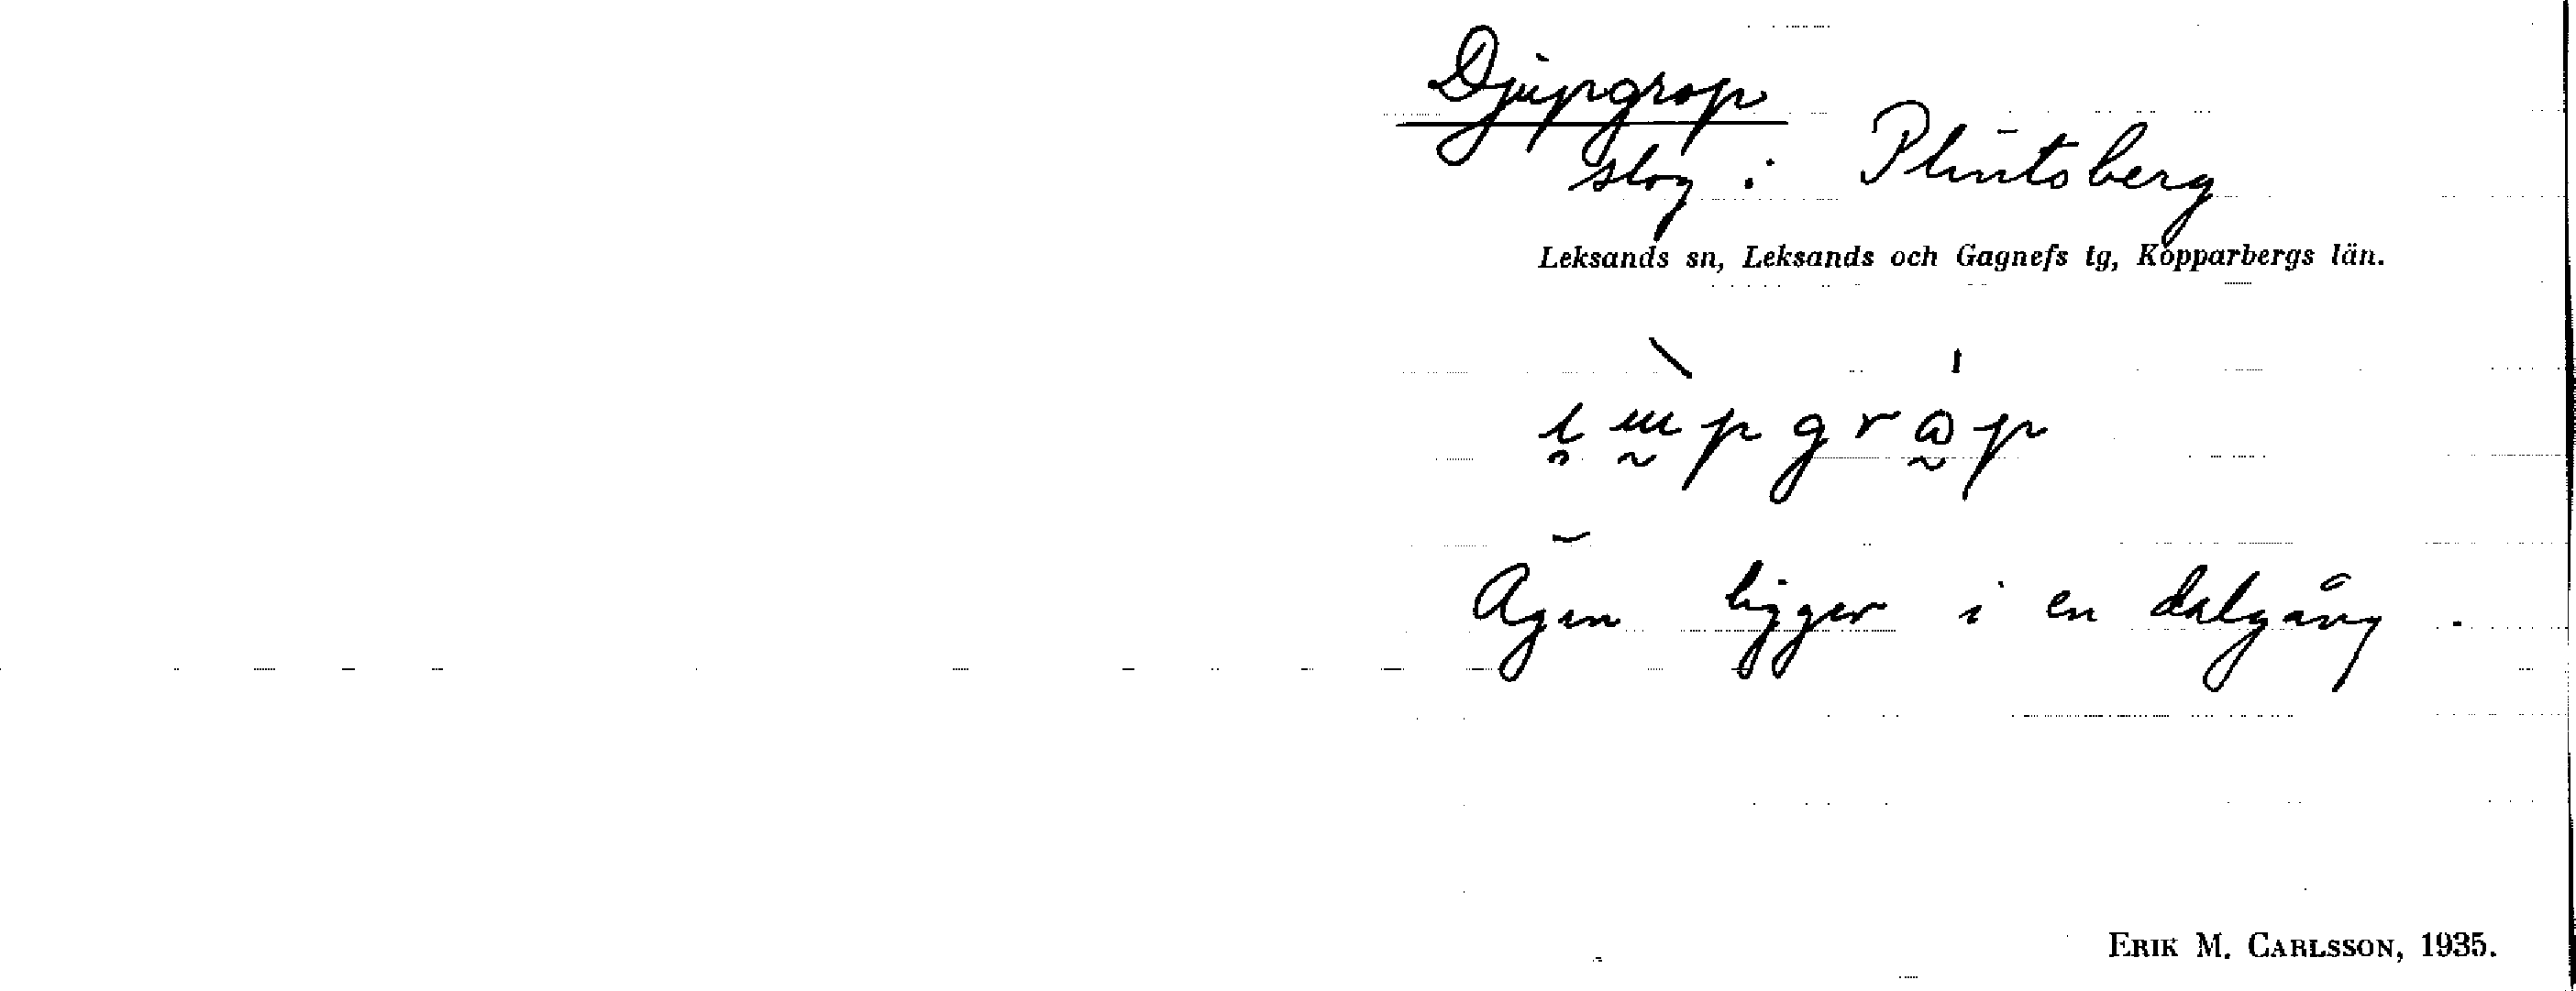 Djupgrop
slog i Plintsberg
Leksands sn, Leksands och Gagnefs tg, Kopparbergs län.
Ägan ligger i en dalgång.
ERIK M. CARLSSON, 1935.